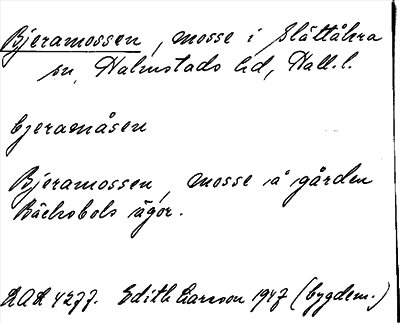 Bjeramossen, mosse i Slättåkra
sn, Halmstads hd, Hall. l.
bjeramåsen
Bjeramossen, mosse å gården
Bäckabols ägor.
AAR 4277. Edith Larsson 1947 (bygdem.)